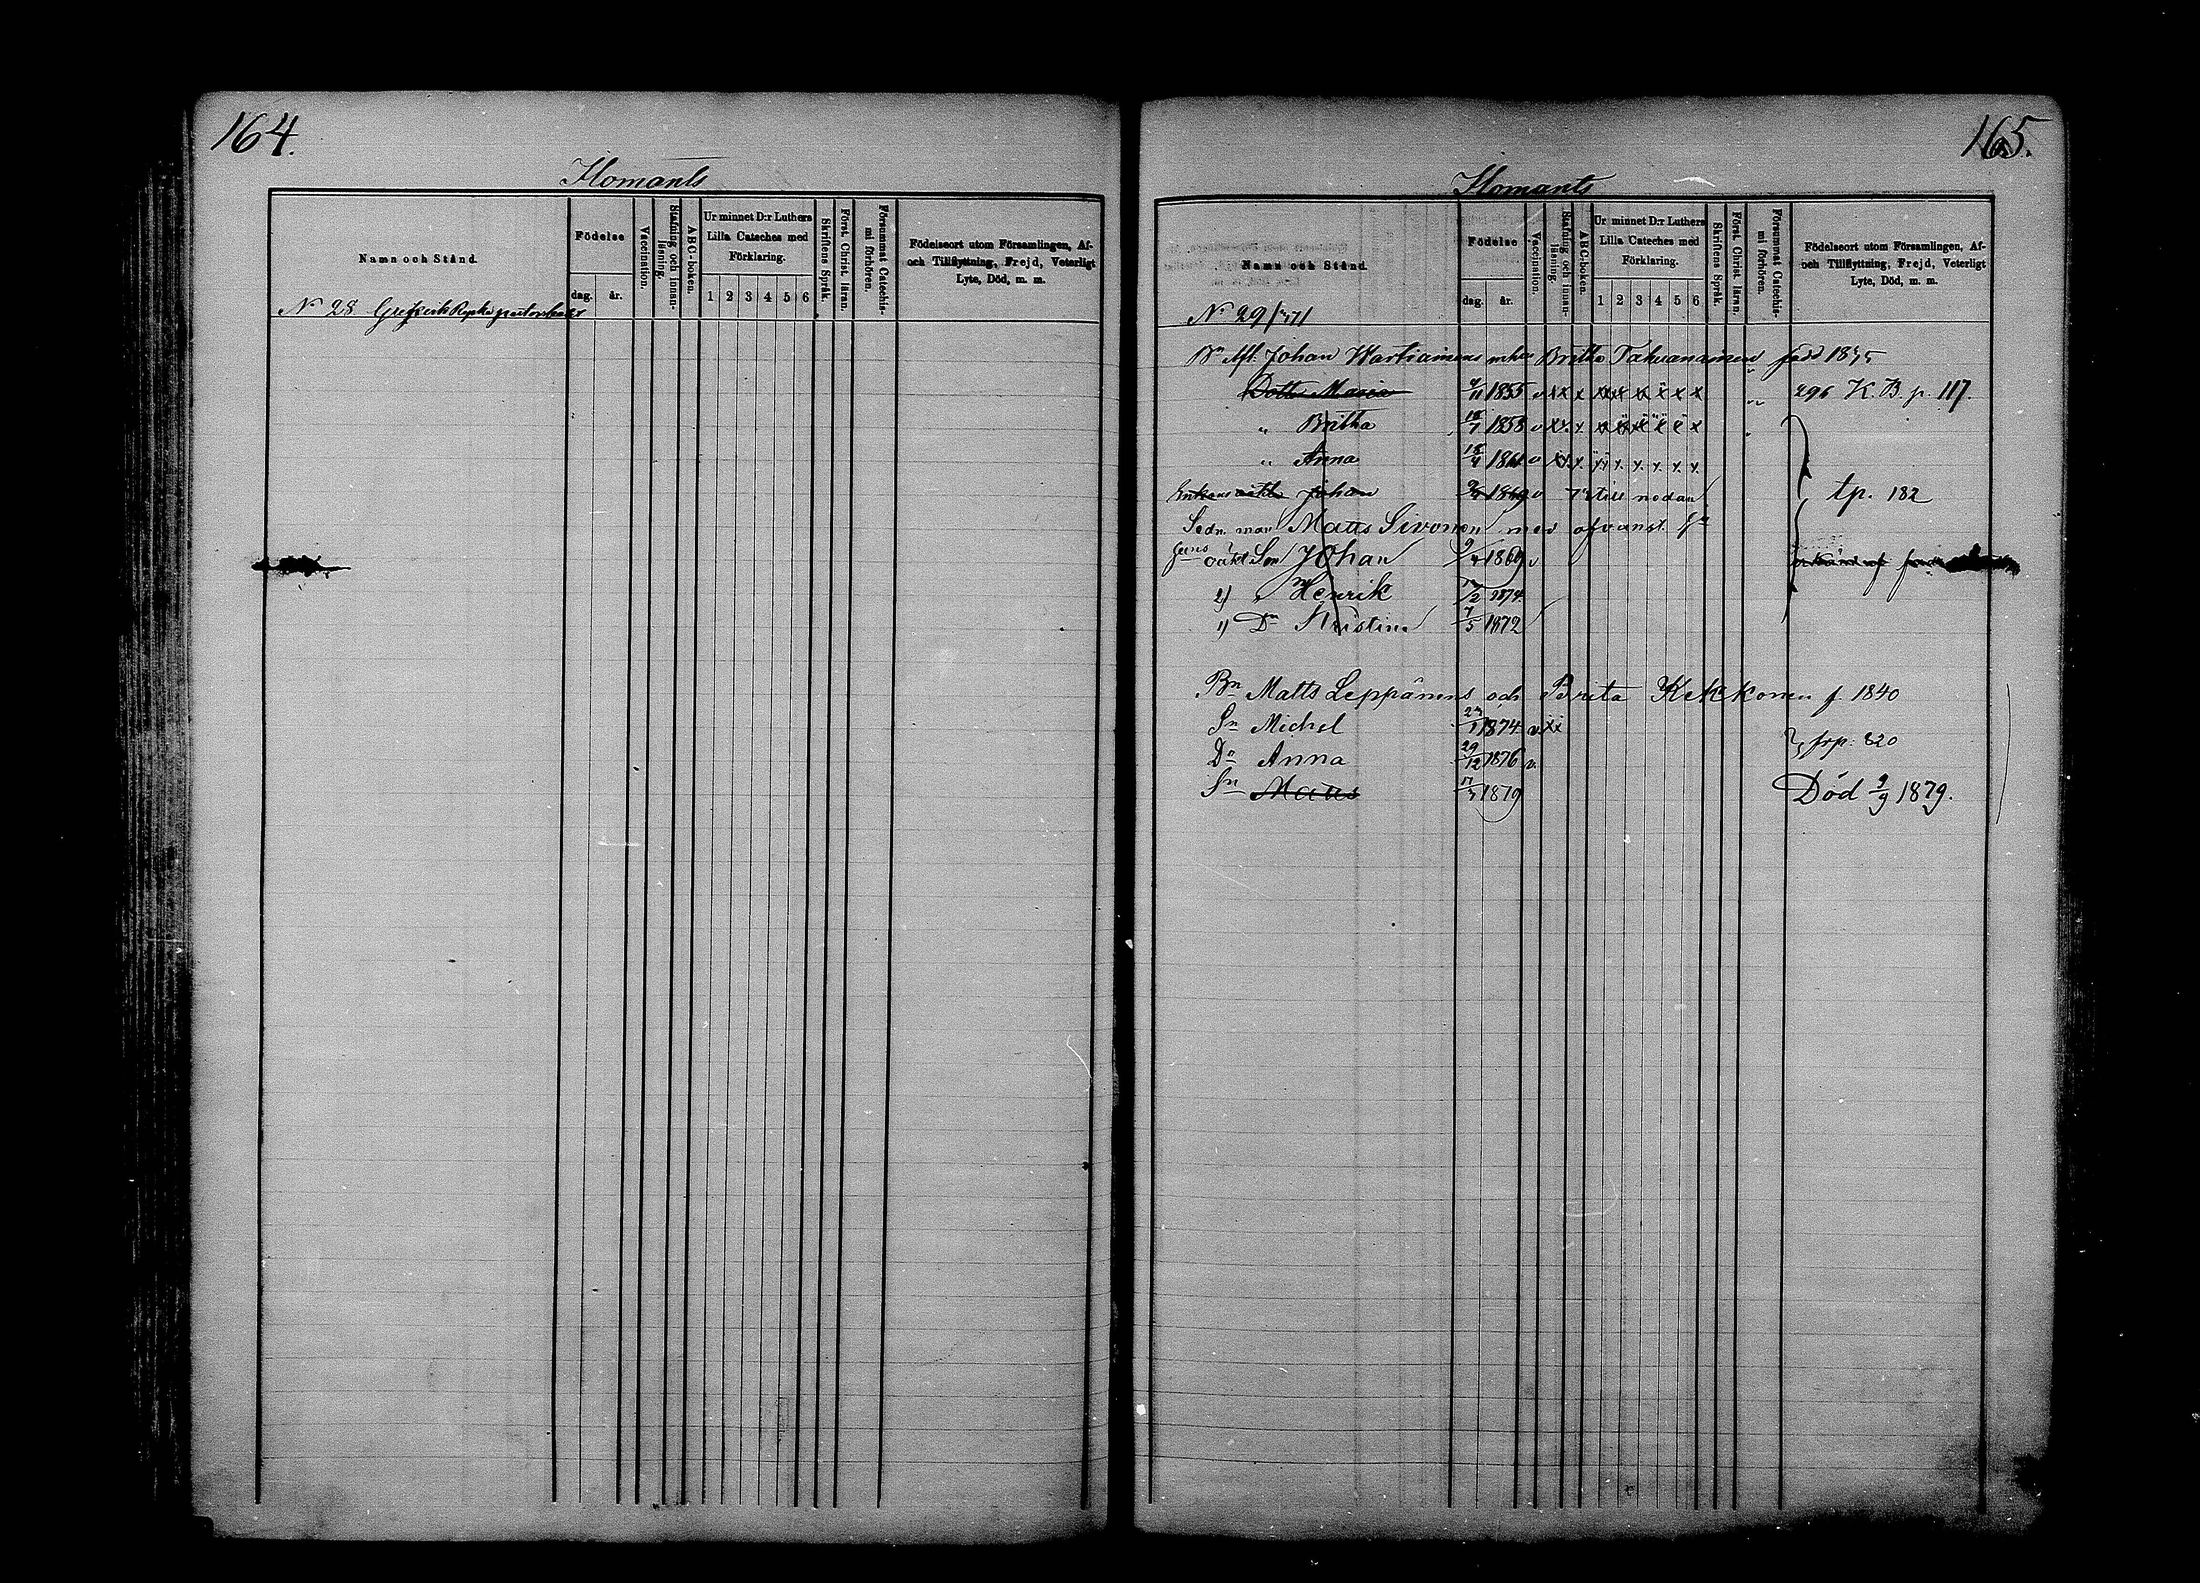 164.
Ilomants
Namn och Stånd.
Födelse
dag. år.
Vaccination.
Stafning och innanläsning.
ABC-boken.
Ur minnet D:r Luthers Lilla Cateches med Förklaring.
1 2 3 4 5 6
Skriftens Språk.
Först. Christ. läran.
Försummat Catechismi förhören.
Födelseort utom Församlingen, Af- och Tillflyttning, Frejd, Veterligt Lyte, Död, m. m.
No 28
165.
Ilomants
Namn och Stånd.
Födelse
dag. år.
Vaccination.
Stafning och innanläsning.
ABC-boken.
Ur minnet D:r Luthers Lilla Cateches med Förklaring.
1 2 3 4 5 6
Skriftens Språk.
Först. Christ. läran.
Försummat Catechismi förhören.
Födelseort utom Församlingen, Af- och Tillflyttning, Frejd, Veterligt Lyte, Död, m. m.
No 29
Bn Afl. Johan Wartiainens enka Britha född
Dottr Maria 1855 v 296 K. B. p. 117.
" Britha 1858 v
" Anna 1861 v
Enkans oäkta Johan 9/4 1869 v nedan tp. 182
Sedn. man Matts Sivonen med ofvanst.
oäkt Son Johan 9/4 1869 v
2) " Henrik 1874
1) Dr Kristina 7/5 1872
Bn Matts Leppänens och Brita Kekkonen f. 1840
Sn Michel 1874 v
Dr Anna 29/12 1876 v. frp. 320
Sn Matts 1879 Död 2/9 1879.